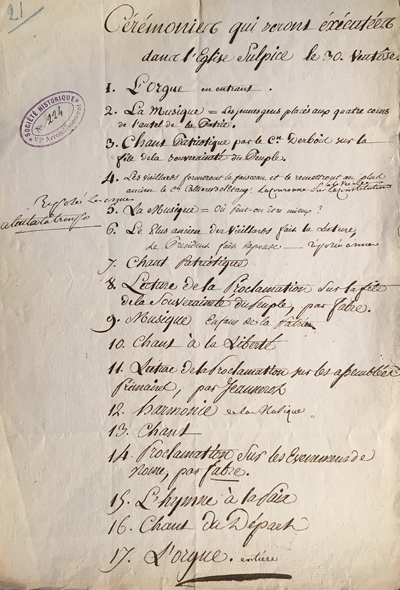 21
Cérémonies qui seront éxécutées
dans l'Eglise Sulpice le 30. Ventôse.
SOCIÉTÉ HISTORIQUE
No. 224
1. L'Orgue en entrant.
2. La Musique = Les jeunes gens placés aux quatre coins
de l'autel de la Patrie.
3. Chant Patriotique par le Cn. sur la
fête de la souveraineté du Peuple.
4. Les vieillards formeront le faisceau et le remettront au plus
ancien le Cn. La couronne la Constitution
5. La Musique = Où peut-on être mieux ?
6. Le Plus ancien des Vieillards fait la Lecture,
Le Président fait reponse
7. Chant Patriotique
8. Lecture de la Proclamation sur la fête
de la Souveraineté du Peuple, par fabre.
9. Musique Enfans de la Patrie
10. Chant à la Liberté
11. Lecture de la Proclamation sur les assemblées
Primaires, par
12. harmonie de la Musique
13. Chant
14. Proclamation sur les Evenemens de
Rome, par fabre.
15. L'hymne à la Paix
16. Chant du Départ
17. L'orgue. entière